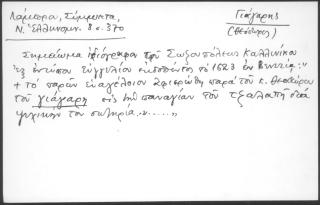 Λάμπρου, Σύμμικτα,
Ν. Ἑλληνομν. 8. σ. 370
Γιάγαρης
(Θεόδωρος)
Σημείωμα ἰδιόγραφον τοῦ Σωζοπόλεως Καλλινίκου
ἐξ ἐντύπου εὐαγγελίου ἐκδοθέντος τὸ 1623 ἐν Βενετίᾳ: "
+ τὸ παρὸν εὐαγγέλιον ἀφιερώθη παρὰ τοῦ κ. Θεοδώρου
τοῦ γιάγαρη εἰς τὴν παναγίαν τοῦ τζαλαπῆ διὰ
ψυχικήν του σωτηρία